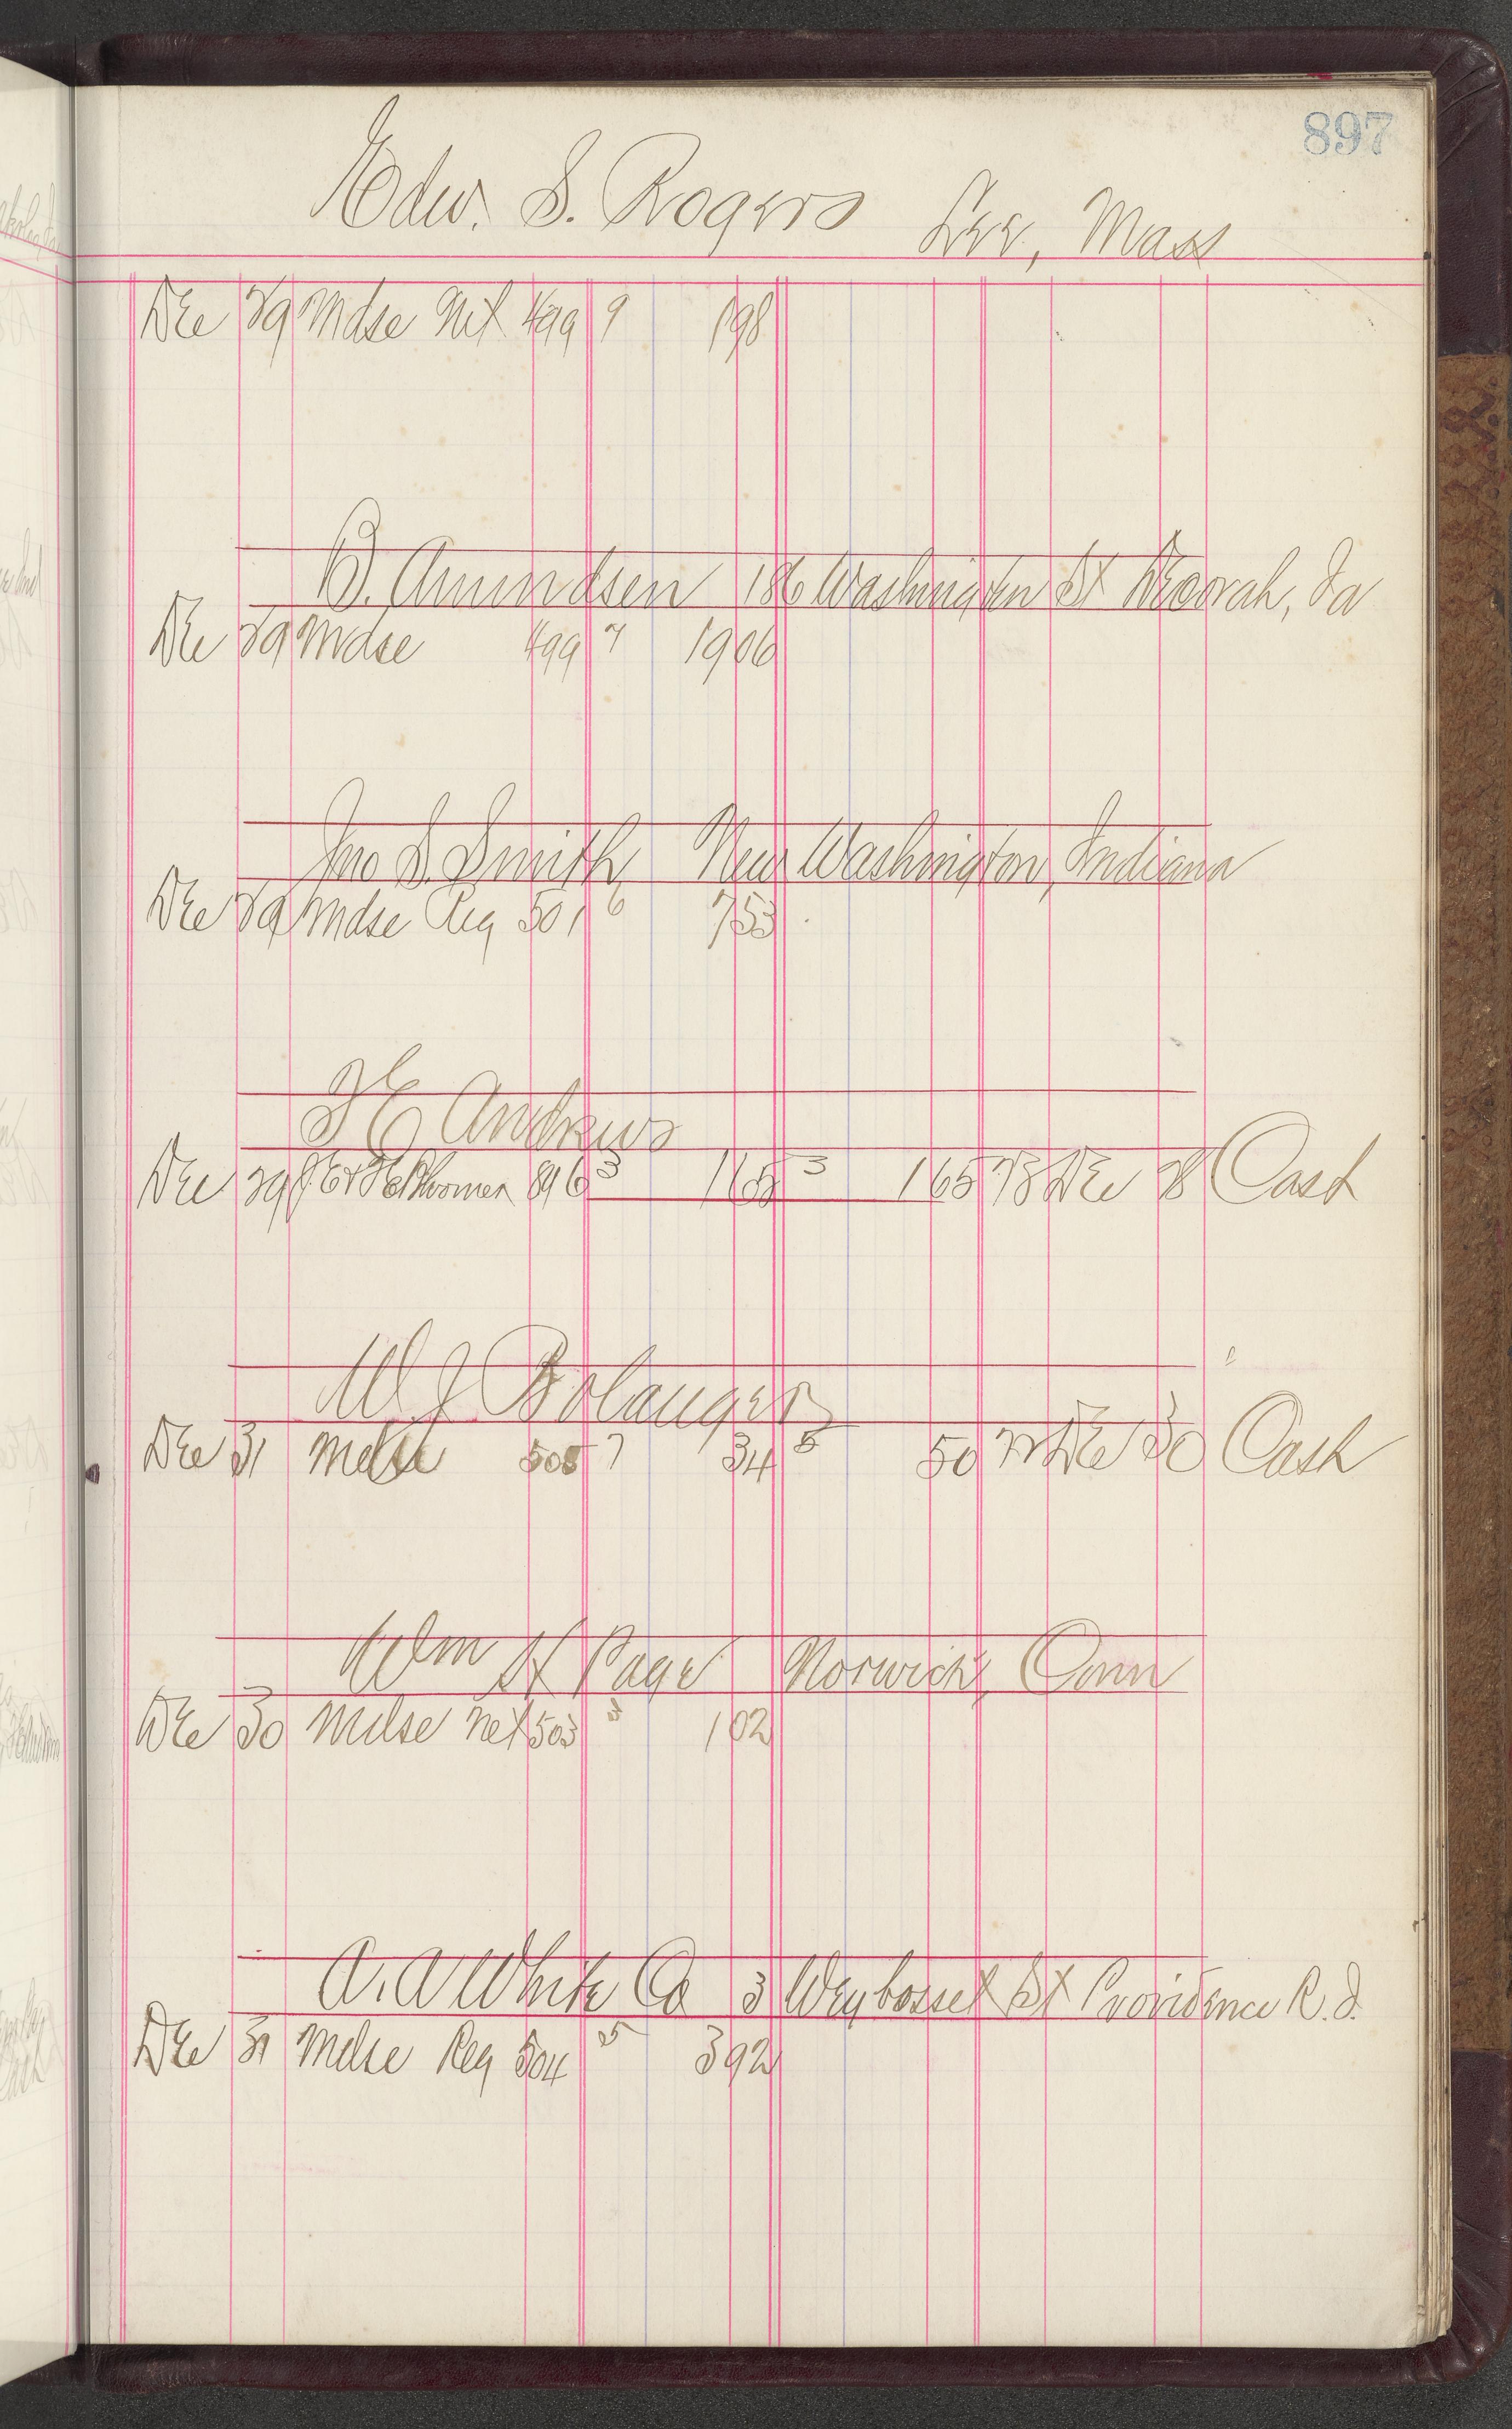 897
Edw. S. Rogers Lee, Mass
Dec 29 Mdse Net 499 9 198
B. Amundsen 186 Washington St Decorah, Ia
Dec 29 Mdse 499 7 1906
Jno S. Smith, New Washington, Indiana
Dec 29 Mdse Reg 501 6 753
Andrews
Dec 29 896 3 165 3 165 73 Dec 28 Cash
W J Bolanger
Dec 31 Mdse 505 7 34 5 50 Dec 30 Cash
Wm H Page Norwich, Conn
Dec 30 Mdse Net 503 3 102
A. A White Co 3 Weybosset St Providence R.I.
Dec 31 Mdse Reg 504 5 392